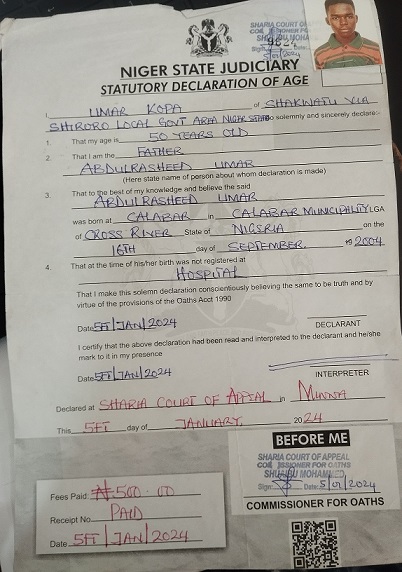 SHARIA COURT OF
9624
5/01/2024
NIGER STATE JUDICIARY
STATUTORY DECLARATION OF AGE
I, UMAR KOPA of SHAKWATU VIA
SHIRORO LOCAL GOVT AREA NIGER STATE do solemnly and sincerely declare:-
1. That my age is 50 YEARS OLD
2. That I am the FATHER
ABDULRASHEED UMAR
(Here state name of person about whom declaration is made)
3. That to the best of my knowledge and believe the said
ABDULRASHEED UMAR
was born at CALABAR in CALABAR MUNICIPALITY LGA
of CROSS RIVER State of NIGERIA on the
16TH day of SEPTEMBER. 2004
4. That at the time of his/her birth was not registered at
HOSPITAL
That I make this solemn declaration conscientiously believing the same to be truth and by
virtue of the provisions of the Oaths Acct 1990
Date 5TH/JAN/2024
DECLARANT
I certify that the above declaration had been read and interpreted to the declarant and he/she
mark to it in my presence
Date 5TH/JAN/2024
INTERPRETER
Declared at SHARIA COURT OF APPEAL in MINNA
This 5TH day of JANUARY, 2024
BEFORE ME
SHARIA COURT OF APPEAL
COMMISSIONER FOR OATHS
SHUAIBU MOHAMMED
Sign: Date: 5/01/2024
COMMISSIONER FOR OATHS
Fees Paid ₦500.00
Receipt No. PAID
Date 5TH/JAN/2024